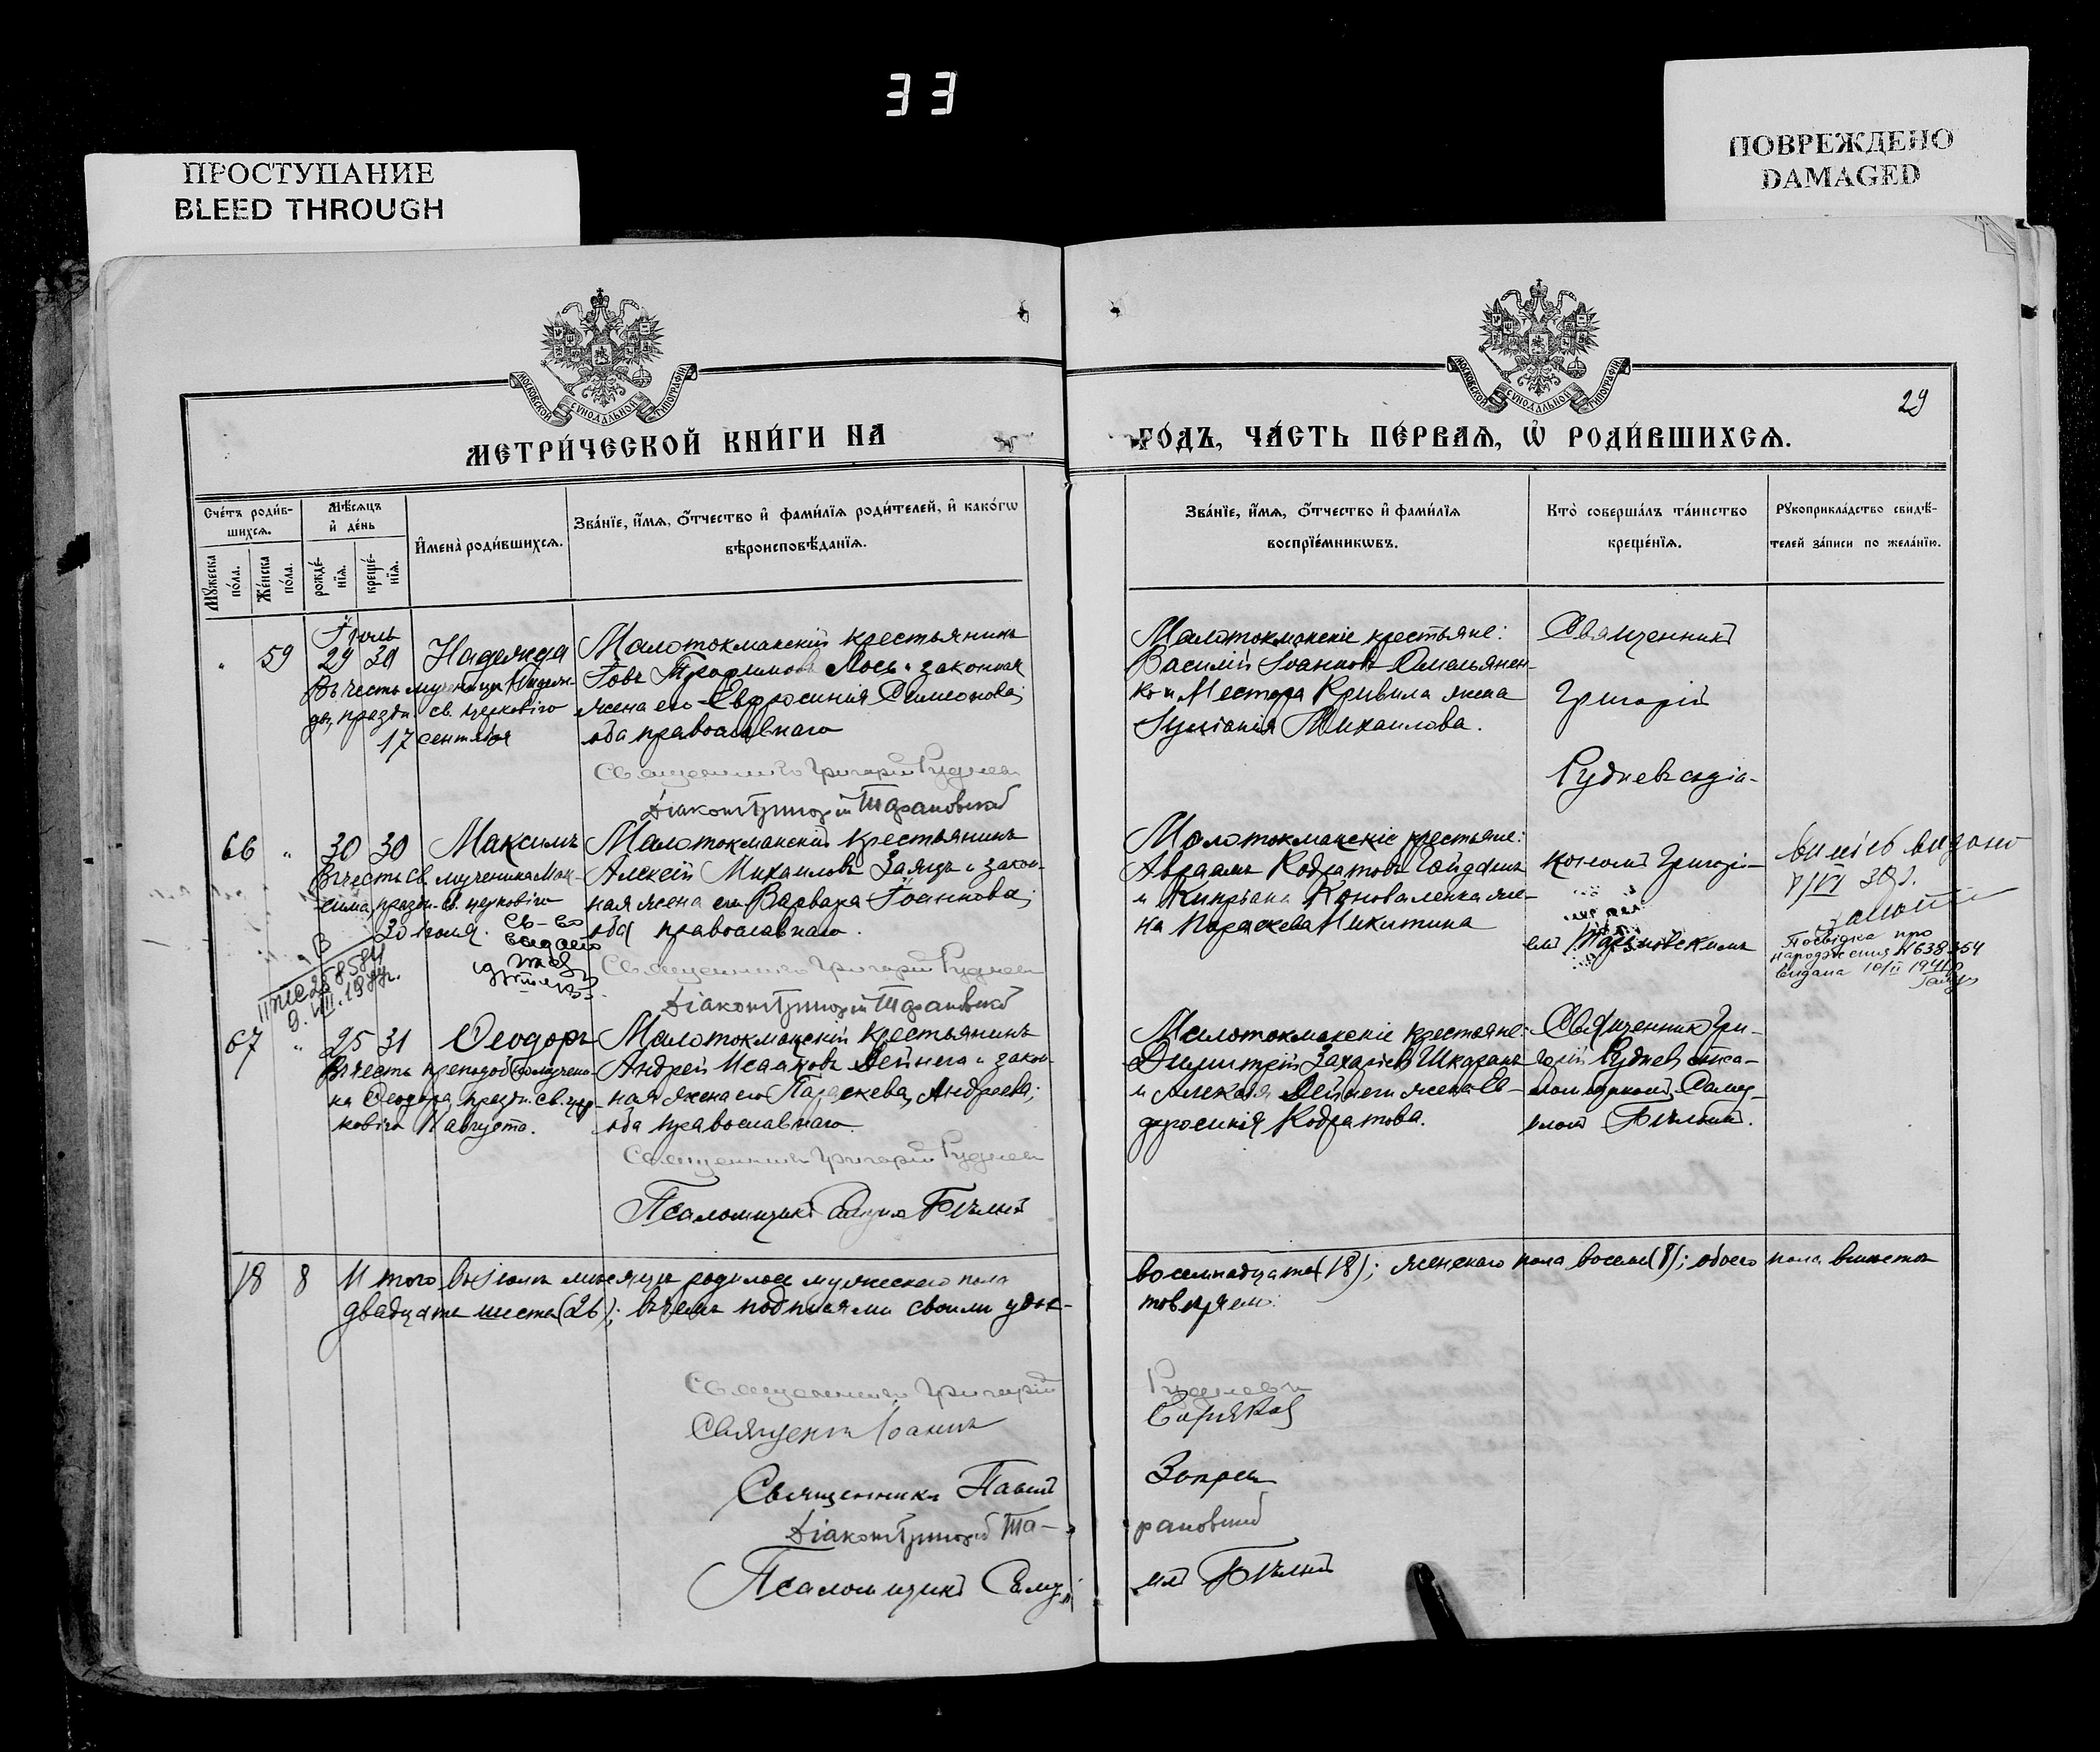 33
ПРОСТУПАНИЕ
BLEED THROUGH
ПОВРЕЖДЕНО
DAMAGED
МОСКОВСКОЙ СѴНОДАЛЬНОЙ ТИПОГРАФІИ
МОСКОВСКОЙ СѴНОДАЛЬНОЙ ТИПОГРАФІИ
29
МЕТРИ́ЧЕСКОЙ КНИ́ГИ НА
ГО́ДЪ, ЧА́СТЬ ПЕ́РВАѦ, Ѡ҆ РОДИ́ВШИХСѦ.
Сче́тъ роди́вшихсѧ.
Мꙋ́жеска по́ла.
Же́нска по́ла.
Мѣ́сѧцъ и҆ де́нь
рожде́нїѧ.
креще́нїѧ.
И҆мена̀ роди́вшихсѧ.
Зва́нїе, и҆́мѧ, ѻ҆́тчество и҆ фами́лїѧ роди́телей, и҆ како́гѡ
вѣроисповѣ́данїѧ.
Зва́нїе, и҆́мѧ, ѻ҆́тчество и҆ фами́лїѧ
воспрїе́мникѡвъ.
Кто̀ соверша́лъ та́инство
креще́нїѧ.
Рꙋкоприкла́дство свидѣ́телей за́писи по жела́нїю.
Іюль
59 29 30 Надежда
Въ честь мученицы Надежды, праздн. св. церковію
17 сентября
Малотокмакскій крестьянинъ
Іовъ Трофимовъ Лось и законная
жена его Евфросинія Симеонова;
оба православнаго
Священникъ Григорій Рудневъ
Діаконъ Григорій Тарановскій
Малотокмакскіе крестьяне:
Василій Іоанновъ Омельянен-
ко и Нестора Кривила жена
Михаилова.
Священникъ
Григорій
Рудневъ съ діа-
66 30 30 Максимъ
Въ честь св. мученика Мак-
сима, праздн. св. церковію
30 іюля.
Св-во выдано
Малотокмакскій крестьянинъ
Алексій Михаиловъ Заяцъ и закон-
ная жена его Варвара Іоаннова;
оба православнаго.
Священникъ Григорій Рудневъ
Діаконъ Григорій Тарановскій
Малотокмакскіе крестьяне:
Авраамъ Кодратовъ Гайдашъ
и Кипріана Коноваленка же-
на Параскева Никитина
кономъ Григорі-
емъ Тарановскимъ
Посвідка про
народження №638364
видана 10/II 1941 р
67 25 31 Ѳеодоръ
Въ честь преподобномучени-
ка Ѳеодора, праздн. св. цер-
ковію 11 августа.
Малотокмакскій крестьянинъ
Андрей Исааковъ Дейнега и закон-
ная жена его Параскева Андреева;
оба православнаго.
Священникъ Григорій Рудневъ
Псаломщикъ Самуилъ Бѣлый
Малотокмакскіе крестьяне:
Димитрій Захаріевъ Шкарань
и Алексія Дейнеги жена Ев-
фросинія Кодратова.
Священникъ Гри-
горій Рудневъ съ пса-
ломщикомъ Саму-
иломъ Бѣлымъ.
18 8 Итого въ іюлѣ мѣсяцѣ родилось мужескаго пола
восемнадцать (18); женскаго пола восемь (8); обоего пола вмѣстѣ
двадцать шесть (26); въ чемъ подписями своими удос-
товѣряемъ:
Священникъ Григорій Рудневъ
Священникъ Іоаннъ
Священникъ Павелъ
Діаконъ Григорій Тарановскій
Псаломщикъ Самуилъ Бѣлый